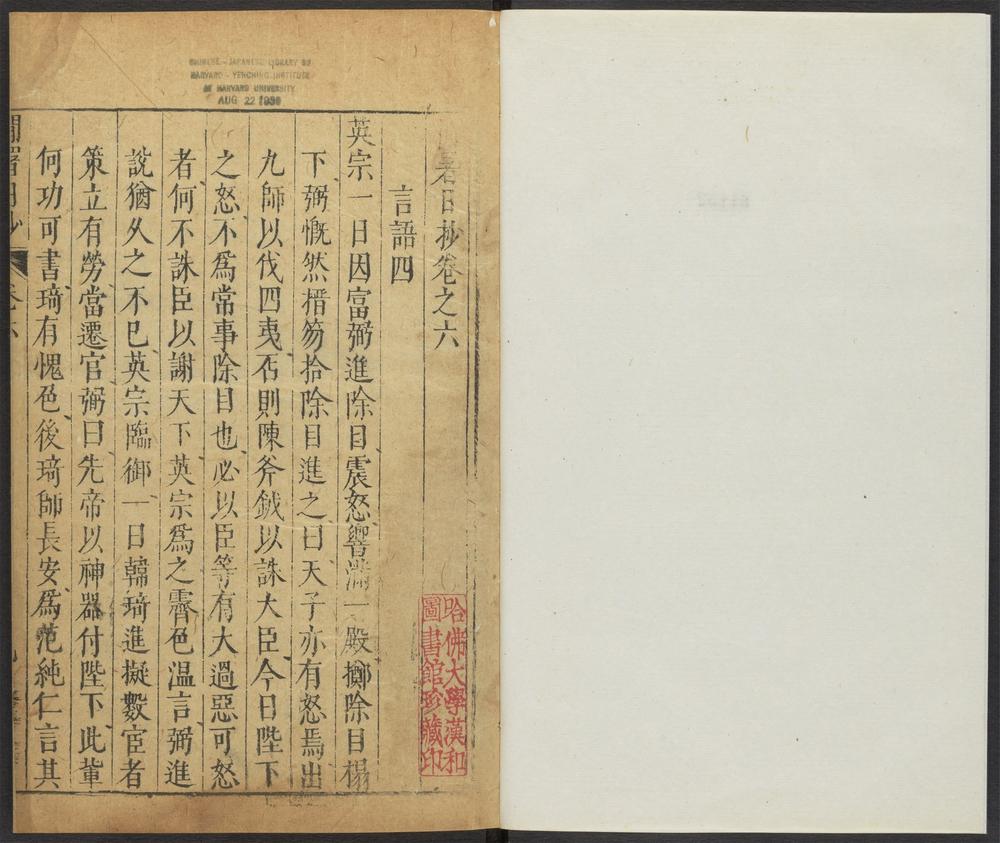 CHINESE - JAPANESE LIBRARY OF
HARVARD - YENCHING INSTITUTE
AT HARVARD UNIVERSITY
AUG 22 1939
署日抄卷之六
言語四
英宗一日因富弼進除目震怒響滿一殿擲除目榻
下弼慨然搢笏拾除目進之曰天子亦有怒焉出
九師以伐四夷否則陳斧鉞以誅大臣今日陛下
之怒不爲常事除目也必以臣等有大過惡可怒
者何不誅臣以謝天下英宗爲之霽色温言弼進
說猶久之不已英宗臨御一日韓琦進擬數宦者
策立有勞當遷官弼曰先帝以神器付陛下此輩
何功可書琦有愧色後琦師長安爲范純仁言其
哈佛大學漢和
圖書館珍藏印